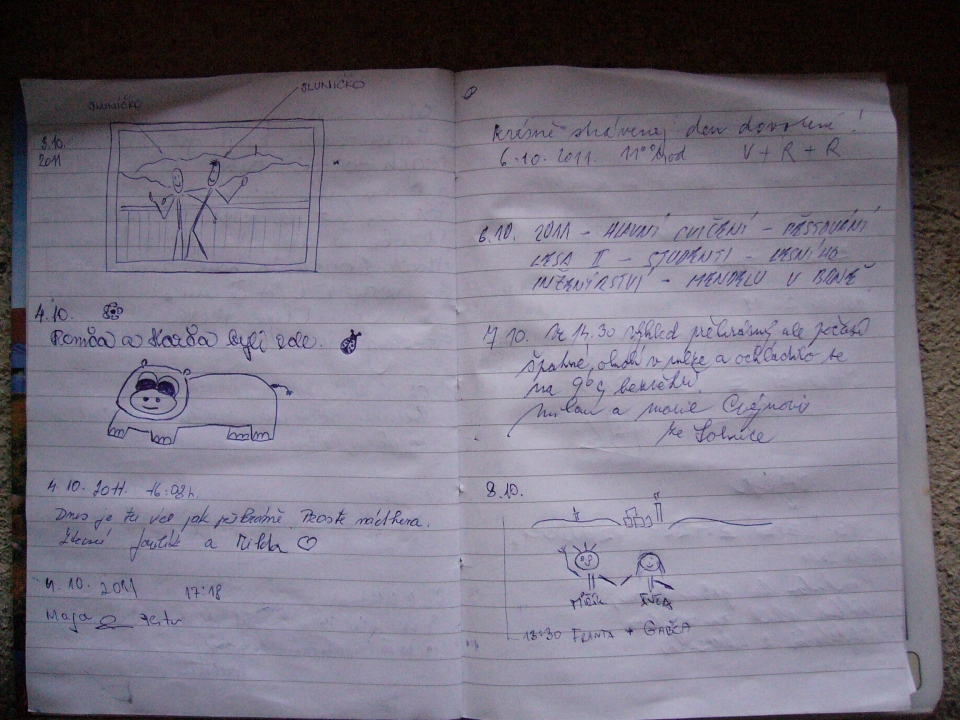 SLUNÍČKO
SLUNÍČKO
3.10.
2011
4.10.
Tomča a Kazča byli zde.
4.10. 2011 16:08h.
Dnes je tu více jak překrásně. Prostě nádhera.
a Milda
4.10. 2011 17:18
Maja
Krásně strávenej den dovolené!
6.10.2011. 11°° hod V + R + R
6.10. 2011 - HLAVNÍ CVIČENÍ - PĚSTOVÁNÍ
LESA II - STUDENTI - LESNÍHO
INŽENÝRSTVÍ - MENDELU V BRNĚ
7.10. Ve 14.30 výhled překrásný, ale počasí
špatné, a ochladilo se
na 9°C
Milan a Marie
ze Solnice
8.10.
IVČA
13:30 FRANTA + GABČA